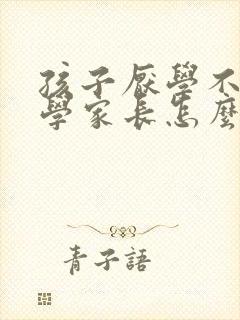 孩子厭學不
學家長怎麼
青子語